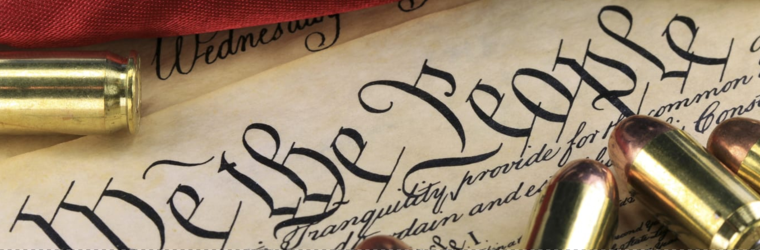 Wednesday
We the People
Tranquility, provide for the common
dain and